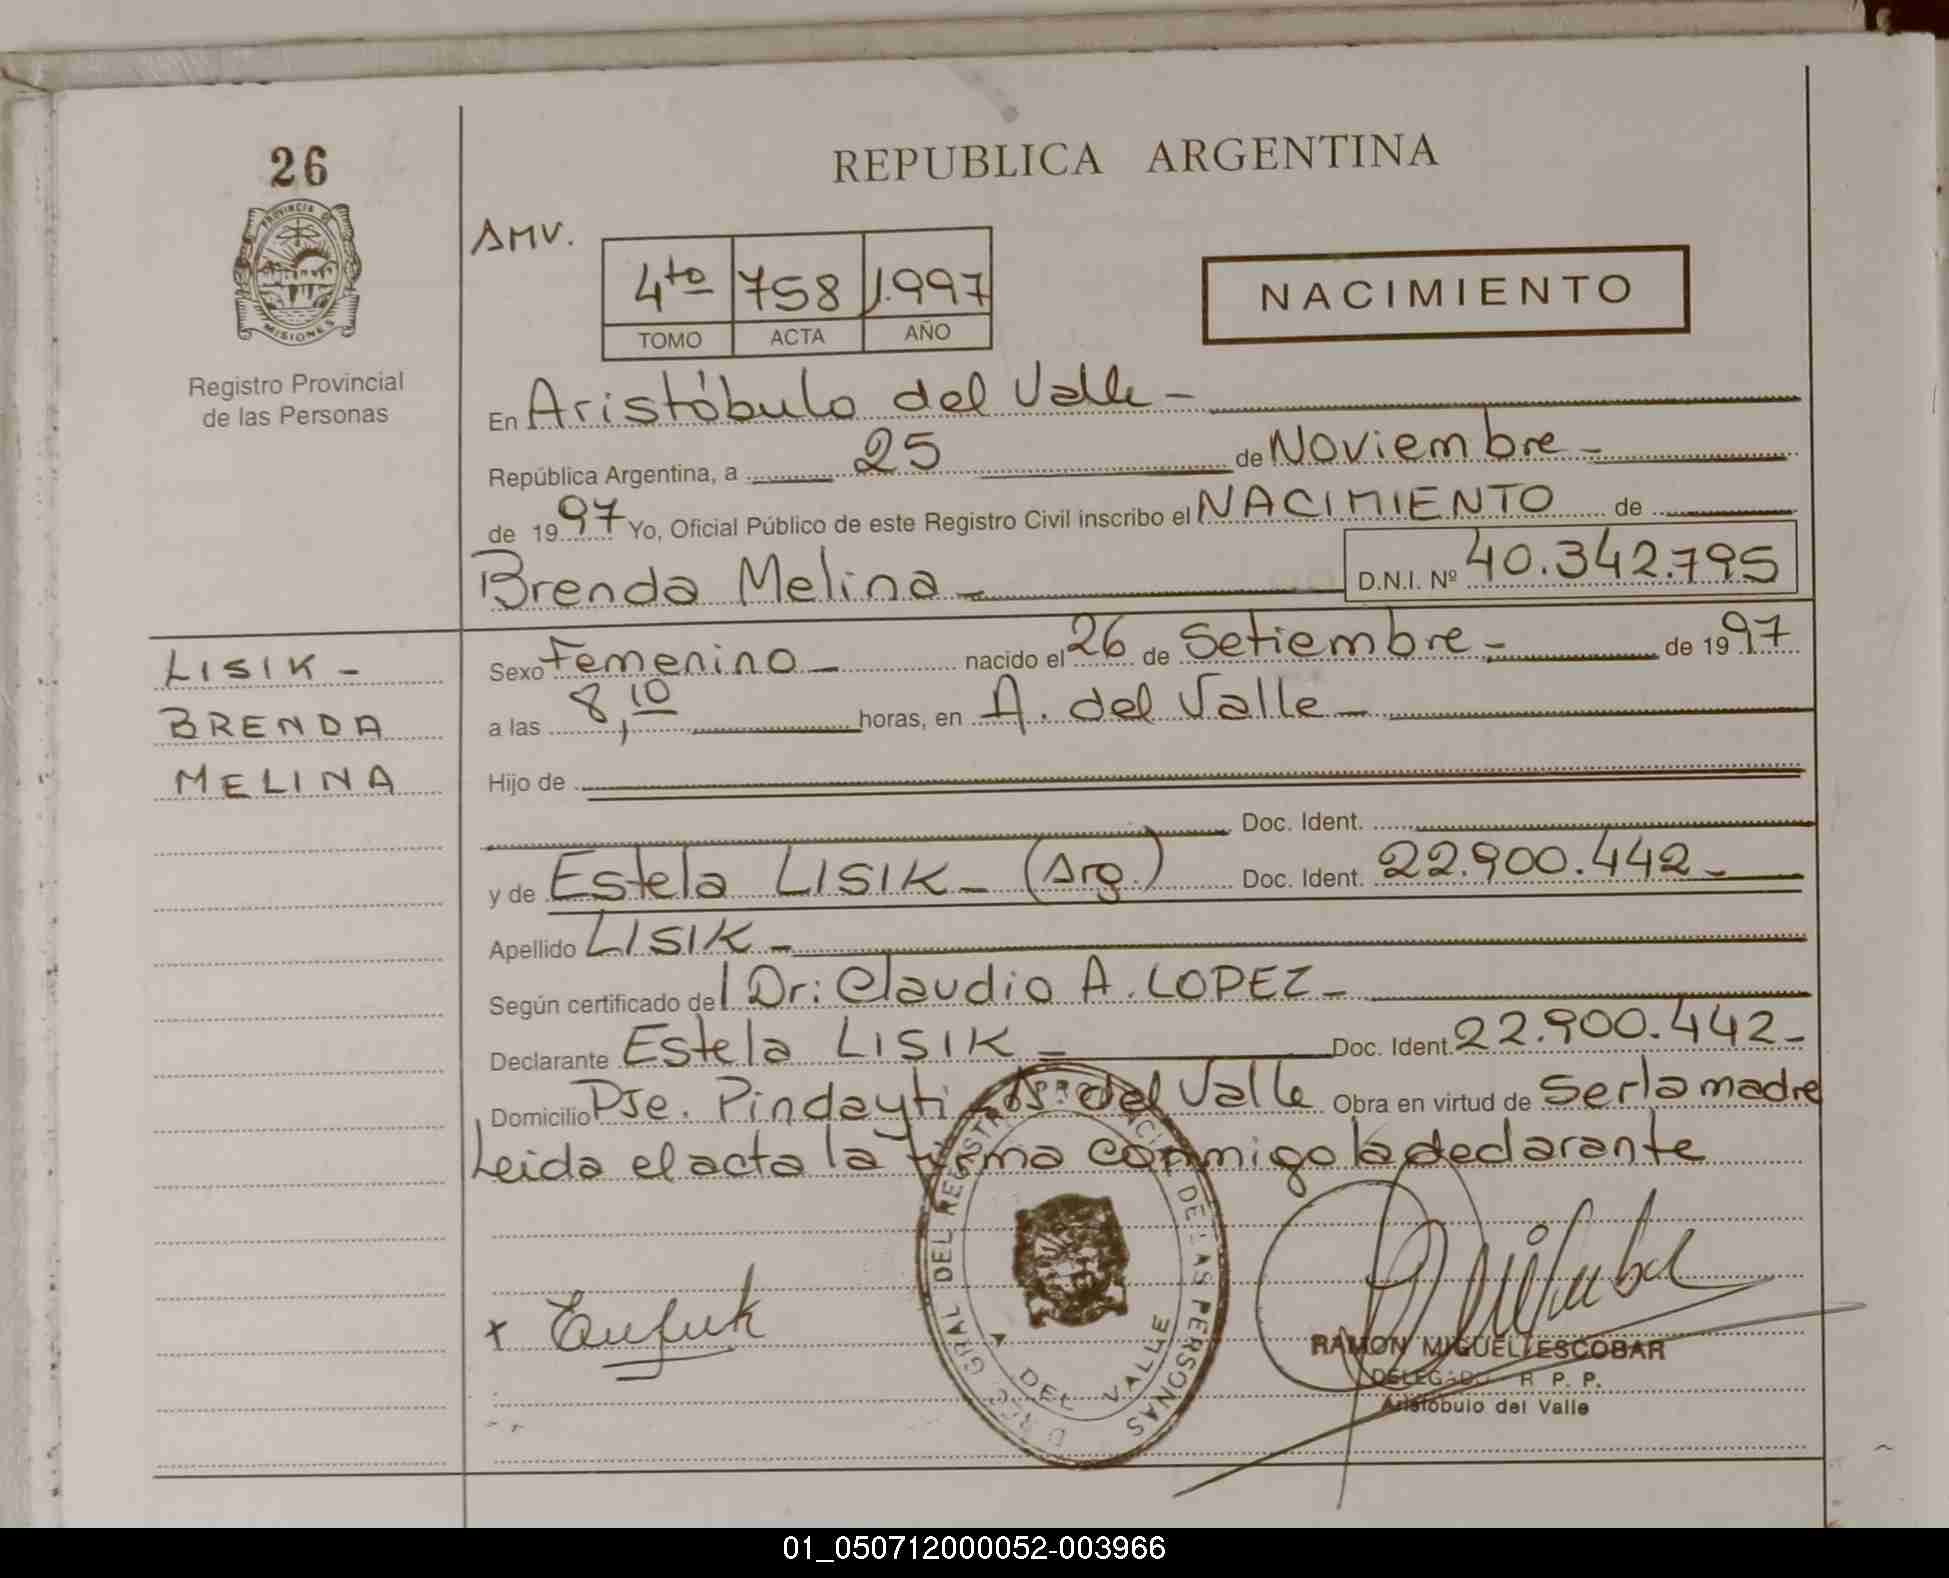 26
PROVINCIA DE
MISIONES
Registro Provincial
de las Personas
REPUBLICA ARGENTINA
AMV.
4to 758 1.997
TOMO ACTA AÑO
NACIMIENTO
En Aristóbulo del Valle -
República Argentina, a 25 de Noviembre -
de 1997 Yo, Oficial Público de este Registro Civil inscribo el NACIMIENTO de
Brenda Melina - D.N.I. Nº 40.342.795
LISIK -
BRENDA
MELINA
Sexo Femenino - nacido el 26 de Setiembre - de 1997
a las 8,10 horas, en A. del Valle -
Hijo de
Doc. Ident.
y de Estela LISIK - (Arg.) Doc. Ident. 22.900.442 -
Apellido LISIK -
Según certificado del Dr: Claudio A. LOPEZ -
Declarante Estela LISIK - Doc. Ident. 22.900.442 -
Domicilio Pje. Pindayti - del Valle Obra en virtud de ser la madre
Leida el acta la firma conmigo la declarante
x
DIREC GRAL DEL REGISTRO PROVINCIAL DE LAS PERSONAS
A DEL VALLE
RAMON MIGUEL ESCOBAR
DELEGADO R. P. P.
Aristóbulo del Valle
01_050712000052-003966